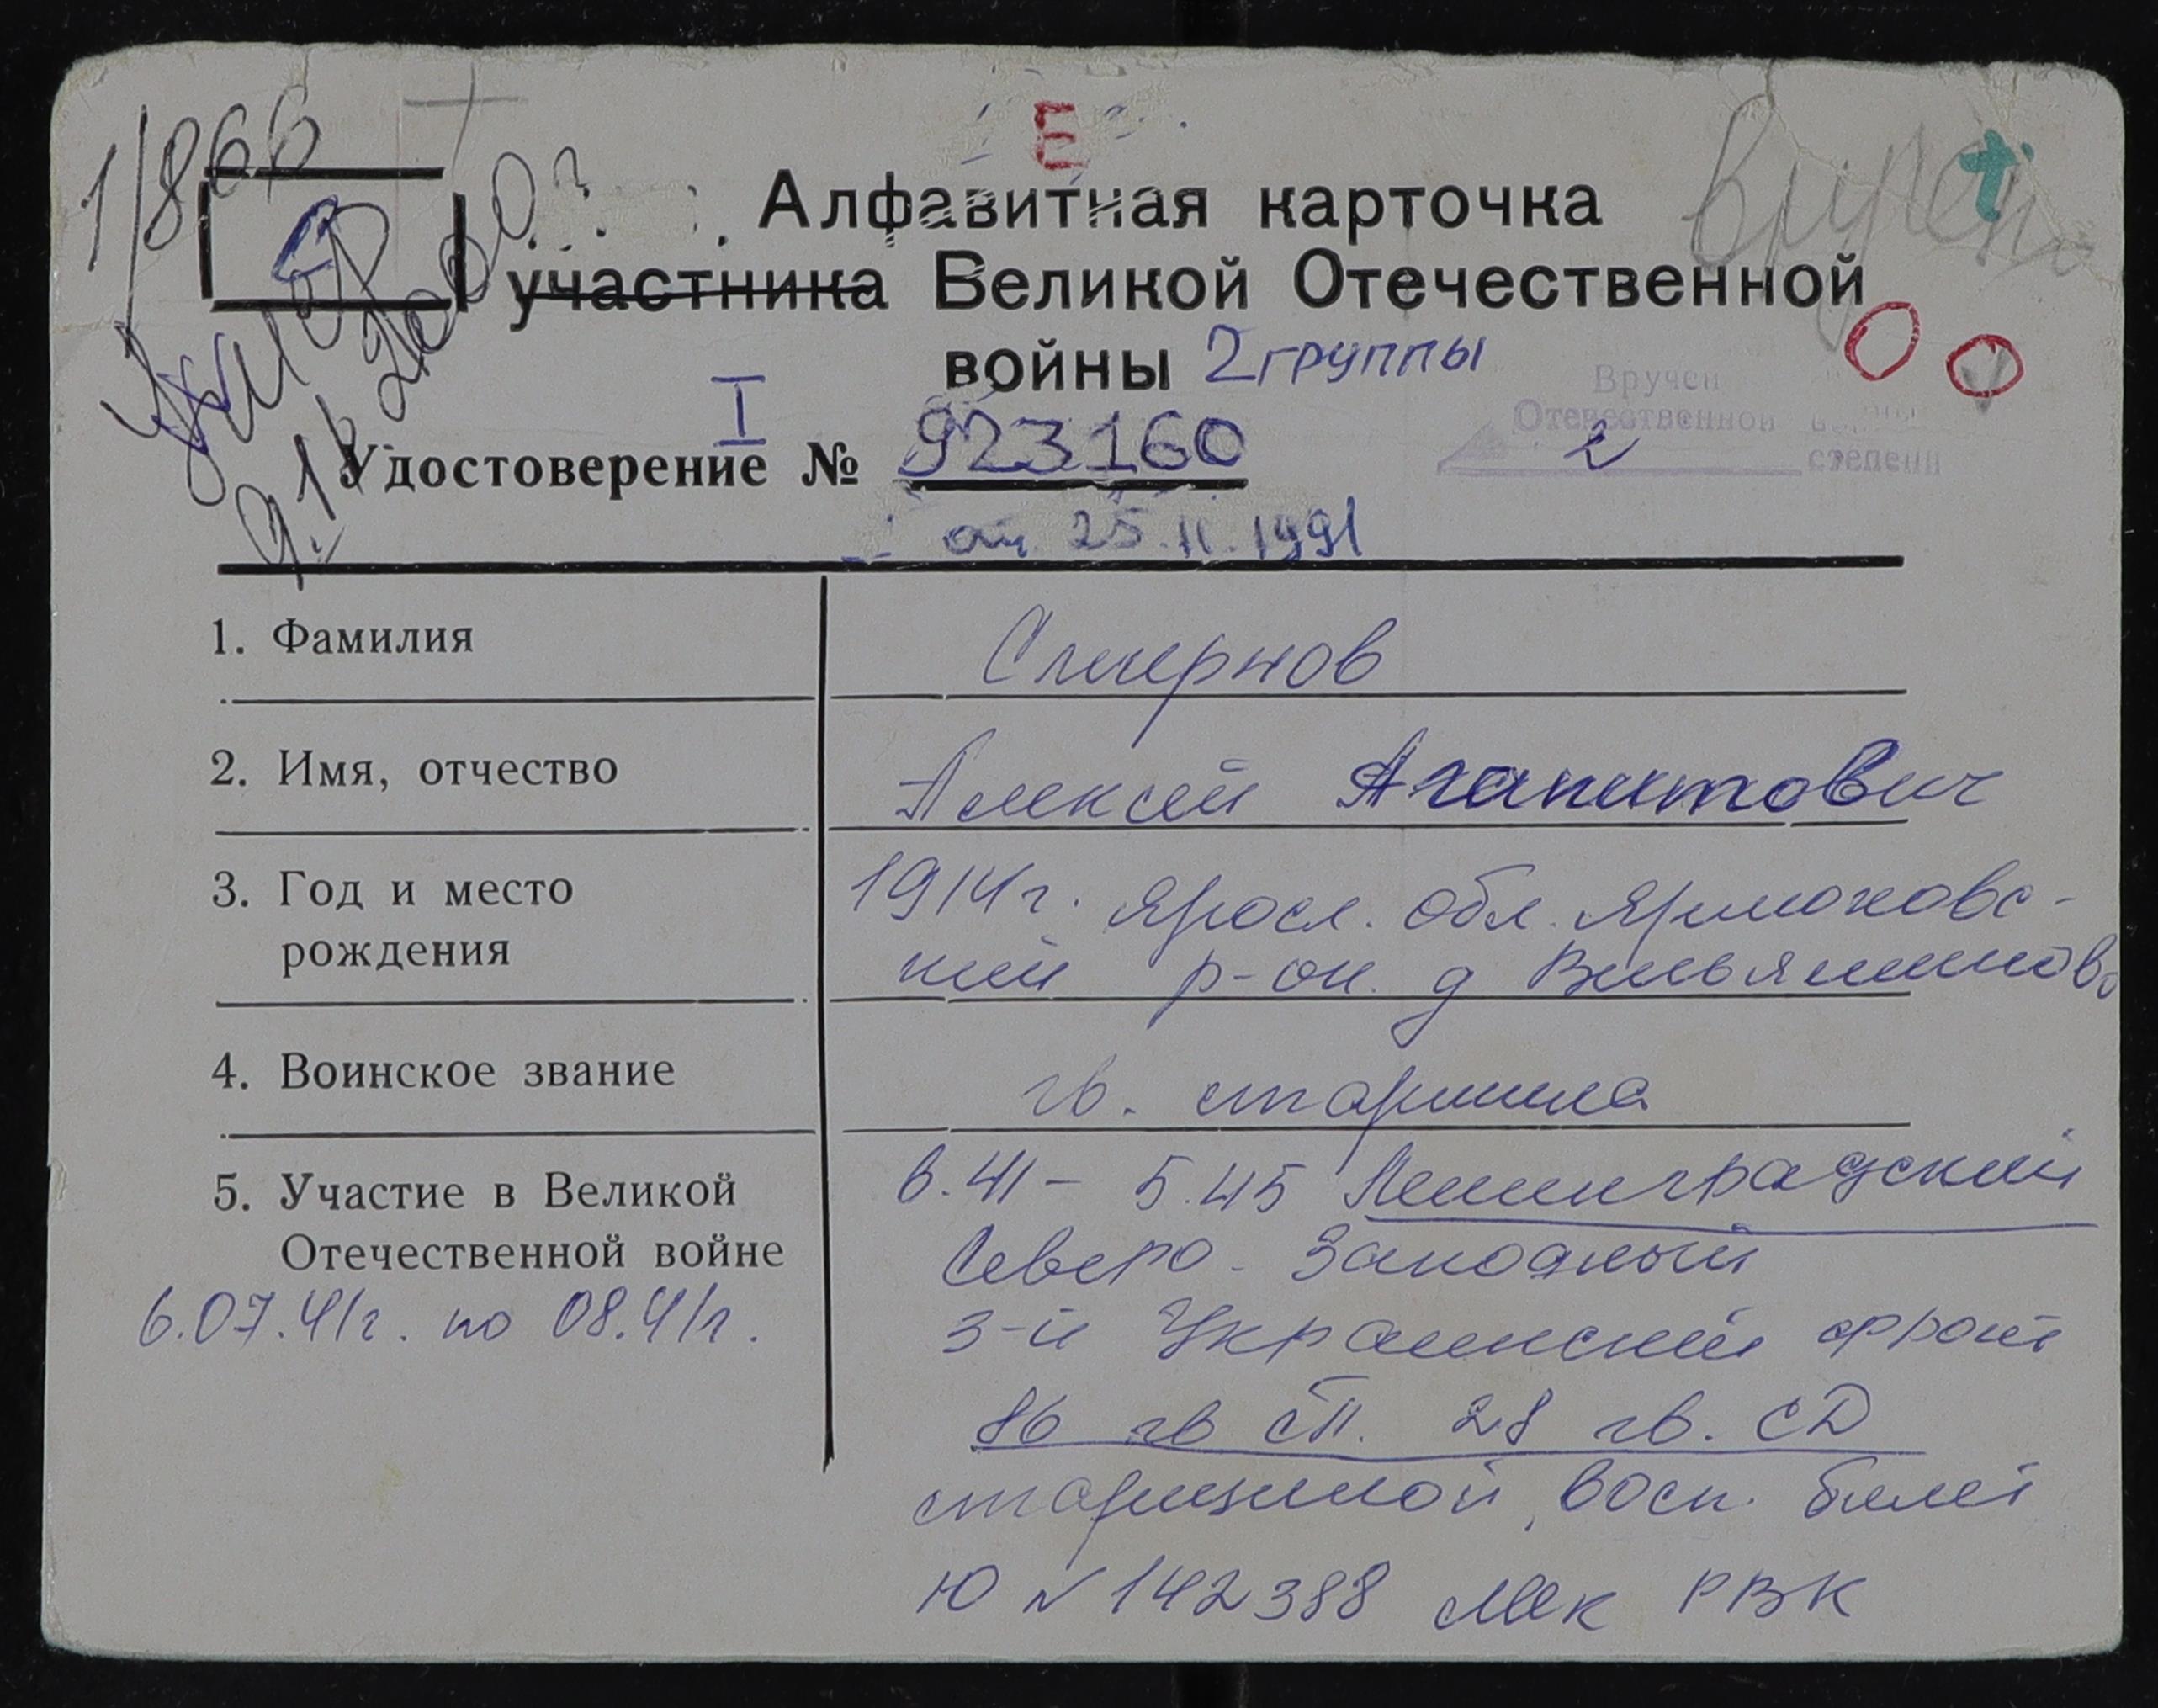 1/866
Е
Алфавитная карточка
участника Великой Отечественной
войны 2 группы
Умер
Вручен
Отечественной
2 степени
I
Удостоверение № 923160
от 25.11.1991
1. Фамилия Смирнов
2. Имя, отчество Алексей Агапитович
3. Год и место 1914г. Яросл. обл.
рождения р-он. д
4. Воинское звание гв. старшина
5. Участие в Великой 6.41 - 5.45 Ленинградский
Отечественной войне Северо-Западный
6.07.41г. по 08.41г. 3-й Украинский фронт
86 гв СП. 28 гв. СД
старшиной, билет
Ю N 142388 РВК